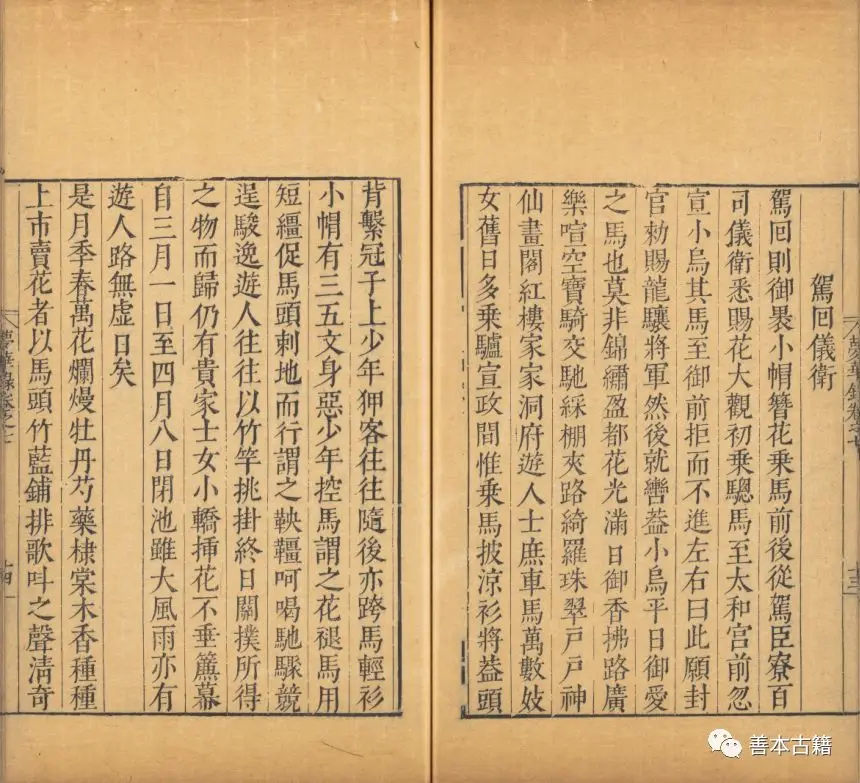 駕回儀衛
駕回則御褁小帽簪花乘馬前後從駕臣寮百
司儀衛悉賜花大觀初乘驄馬至太和宫前忽
宣小烏其馬至御前拒而不進左右曰此願封
官勑賜龍驤將軍然後就轡葢小烏平日御愛
之馬也莫非錦繡盈都花光滿目御香拂路廣
樂喧空寶騎交馳綵棚夾路綺羅珠翠戸戸神
仙畫閣紅樓家家洞府遊人士庶車馬萬數妓
女舊日多乘驢宣政間惟乘馬披凉衫將葢頭
夢華錄卷之七
十三
背繫冠子上少年狎客往往隨後亦跨馬輕衫
小帽有三五文身惡少年控馬謂之花褪馬用
短繮促馬頭刺地而行謂之鞅韁呵喝馳驟競
逞駿逸遊人往往以竹竿挑掛終日關撲所得
之物而歸仍有貴家士女小轎揷花不垂簾幕
自三月一日至四月八日閉池雖大風雨亦有
遊人路無虛日矣
是月季春萬花爛熳牡丹芍藥棣棠木香種種
上市賣花者以馬頭竹藍鋪排歌呌之聲清奇
夢華錄卷之七
十四
善本古籍